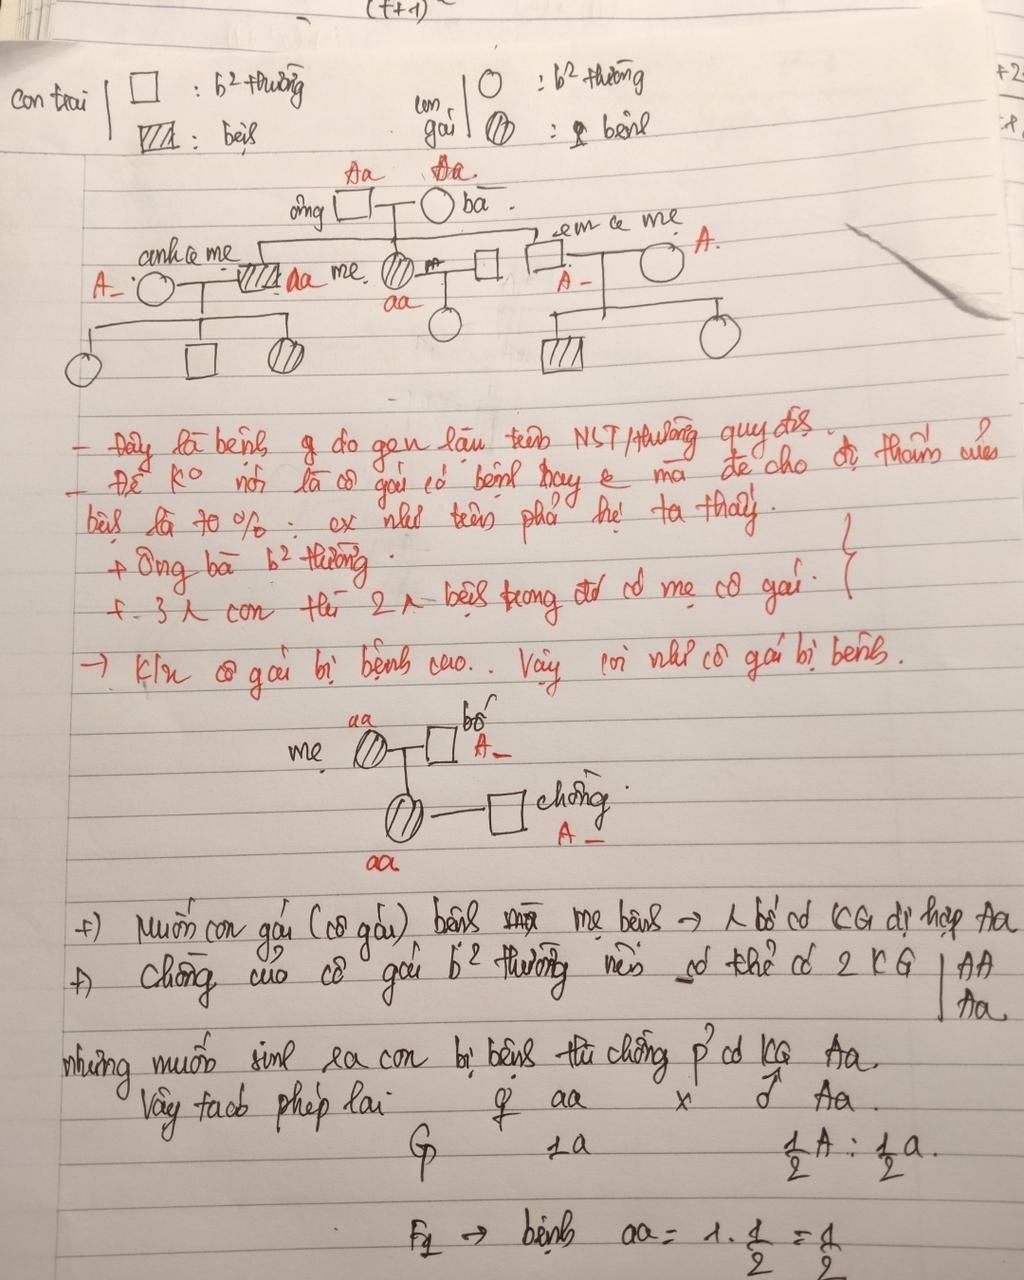 (t+1)
+2
con trai □ : b² thường
▨ : bệh
con gái ○ : b² thường
: bệnh
Aa Aa.
ông bà.
anh c mẹ em c mẹ
A_ aa mẹ A_ A.
aa
- Đây là bệnh do gen lặn trên NST/thường quy địh.
- Đề K° nói là cô gái có bệnh hay mà đề cho độ thấm của
bệh là 70%. như trên phả hệ ta thấy.
+ Ông bà b² thường.
+ 3 con thì 2 bệh trong đó có mẹ cô gái.
→ K/n cô gái bị bệnh cao.. Vậy coi như cô gái bị bệnh.
aa bố
mẹ A_
chồng
A_
aa
+) Muốn con gái (cô gái) bệnh mẹ bệnh → bố có KG dị hợp Aa
+) Chồng của cô gái b² thường nên có thể có 2 KG | AA
Aa
nhưng muốn sinh ra con bị bệnh thì chồng p̉ có KG Aa.
Vậy ta có phép lai ♀ aa x ♂ Aa.
Gp 1a 1/2 A : 1/2 a.
F1 → bệnh aa = 1. 1/2 = 1/2